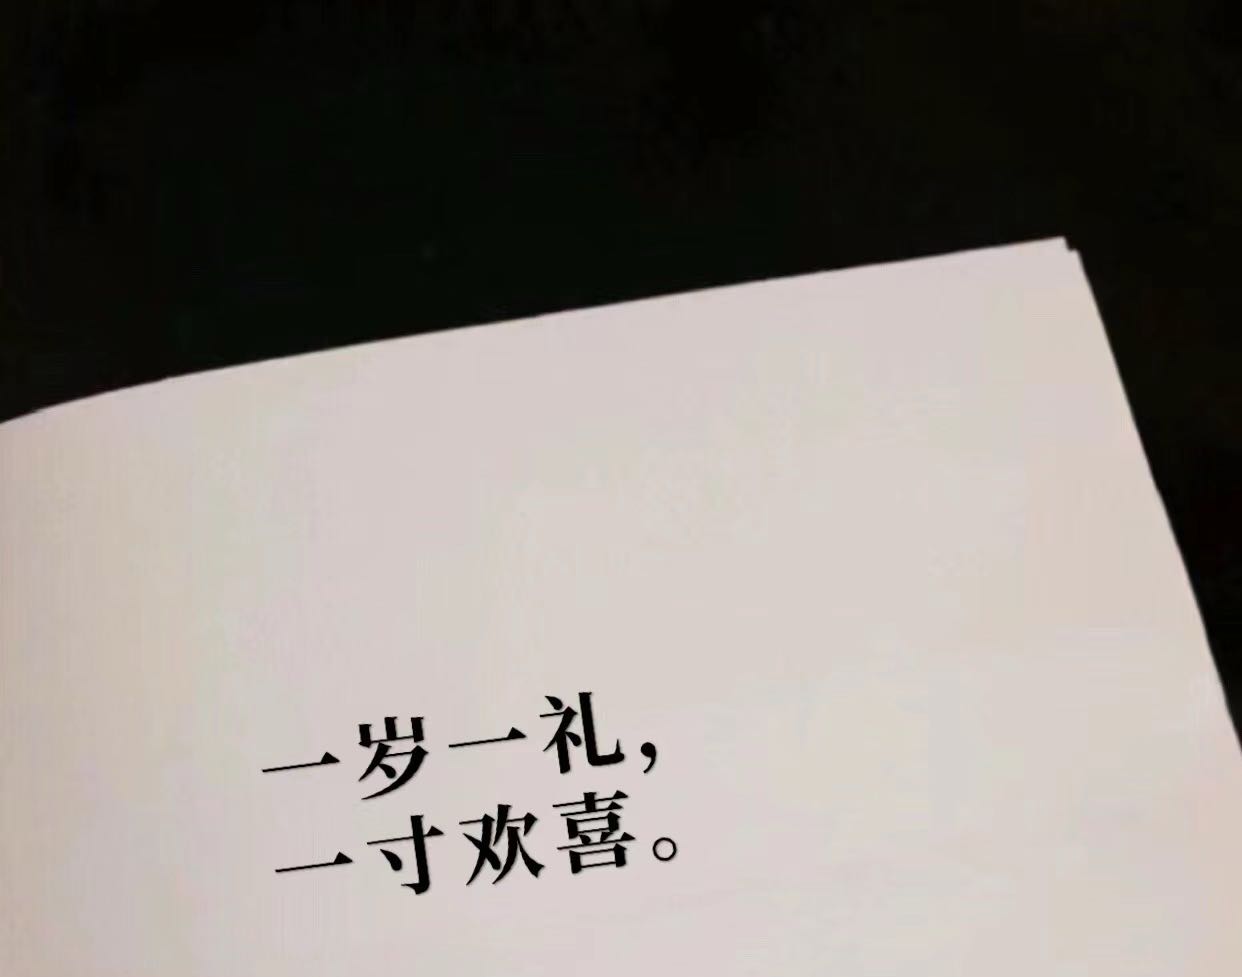 一岁一礼，
一寸欢喜。